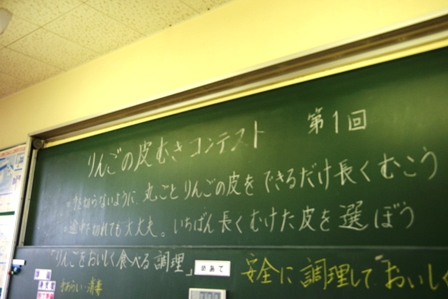 りんごの皮むきコンテスト 第1回
切らないように、丸ごとりんごの皮をできるだけ長くむこう
途中で切れても大丈夫。いちばん長くむけた皮を選ぼう
「りんごをおいしく食べる調理」
安全に調理しておいし